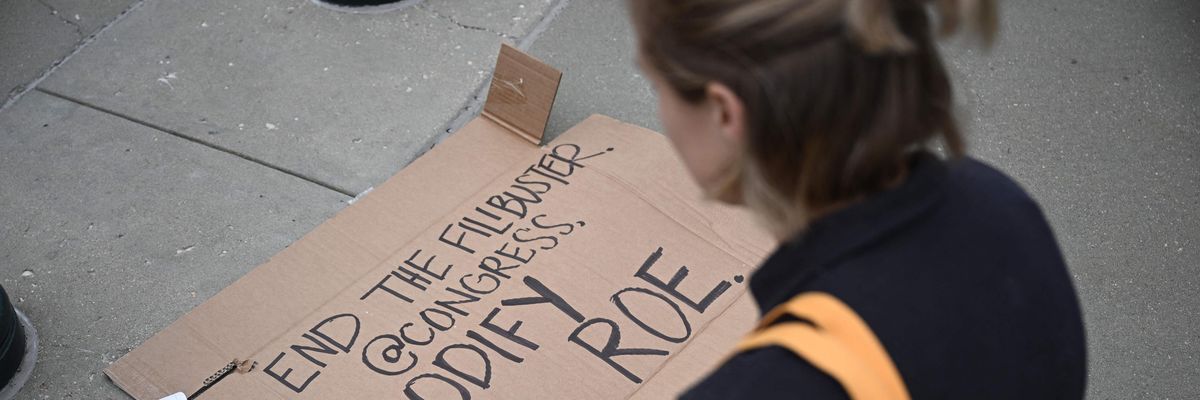 END THE FILIBUSTER.
@CONGRESS,
ODIFY ROE.